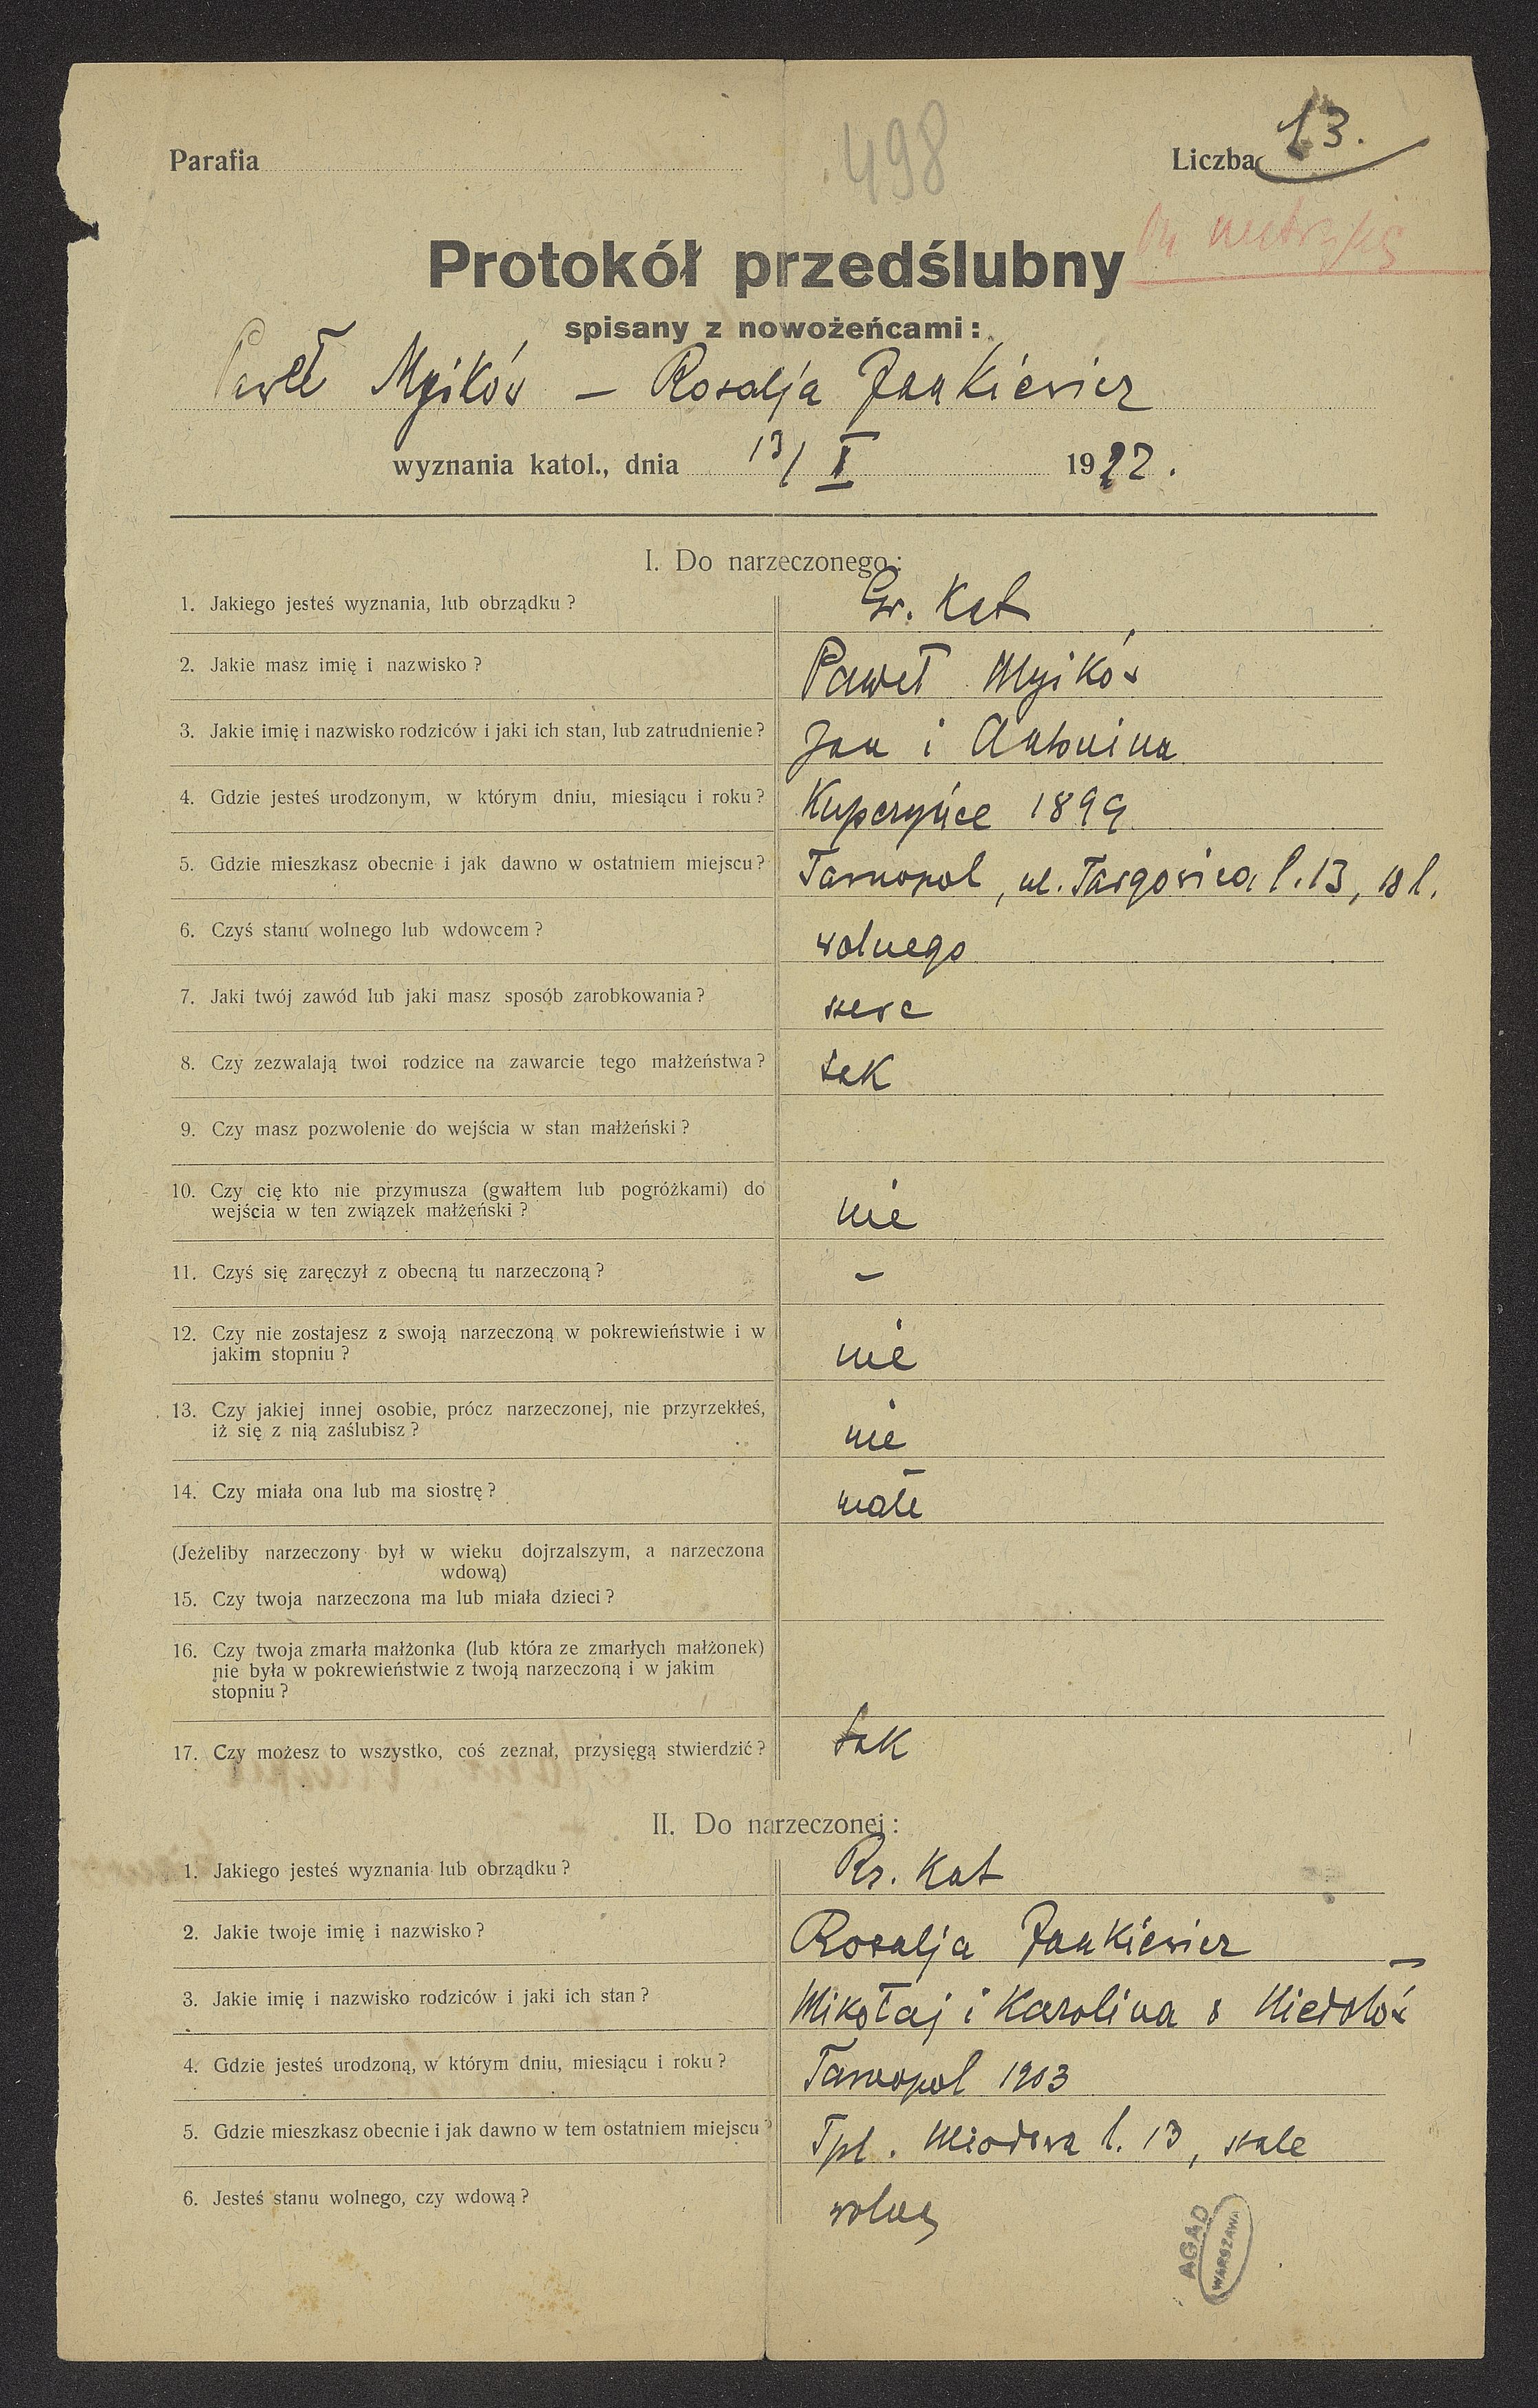 Parafia
498
Liczba 13.
Protokół przedślubny
spisany z nowożeńcami:
Paweł Myików – Rosalja Jankiewicz
wyznania katol., dnia 13/I 1922.
I. Do narzeczonego:
1. Jakiego jesteś wyznania, lub obrządku? Gr. Kat
2. Jakie masz imię i nazwisko? Paweł Myików
3. Jakie imię i nazwisko rodziców i jaki ich stan, lub zatrudnienie? Jan i Antonina
4. Gdzie jesteś urodzonym, w którym dniu, miesiącu i roku? Kupczyńce 1899
5. Gdzie mieszkasz obecnie i jak dawno w ostatniem miejscu? Tarnopol, ul. Targowica l. 13, 18 l.
6. Czyś stanu wolnego lub wdowcem? wolnego
7. Jaki twój zawód lub jaki masz sposób zarobkowania? szewc
8. Czy zezwalają twoi rodzice na zawarcie tego małżeństwa? tak
9. Czy masz pozwolenie do wejścia w stan małżeński?
10. Czy cię kto nie przymusza (gwałtem lub pogróżkami) do
wejścia w ten związek małżeński? nie
11. Czyś się zaręczył z obecną tu narzeczoną? –
12. Czy nie zostajesz z swoją narzeczoną w pokrewieństwie i w
jakim stopniu? nie
13. Czy jakiej innej osobie, prócz narzeczonej, nie przyrzekłeś,
iż się z nią zaślubisz? nie
14. Czy miała ona lub ma siostrę? małe
(Jeżeliby narzeczony był w wieku dojrzalszym, a narzeczona
wdową)
15. Czy twoja narzeczona ma lub miała dzieci?
16. Czy twoja zmarła małżonka (lub która ze zmarłych małżonek)
nie była w pokrewieństwie z twoją narzeczoną i w jakim
stopniu?
17. Czy możesz to wszystko, coś zeznał, przysięgą stwierdzić? tak
II. Do narzeczonej:
1. Jakiego jesteś wyznania lub obrządku? Rz. Kat
2. Jakie twoje imię i nazwisko? Rosalja Jankiewicz
3. Jakie imię i nazwisko rodziców i jaki ich stan? Mikołaj i Karolina
4. Gdzie jesteś urodzoną, w którym dniu, miesiącu i roku? Tarnopol 1903
5. Gdzie mieszkasz obecnie i jak dawno w tem ostatniem miejscu? Tpl. Miodowa l. 13, stale
6. Jesteś stanu wolnego, czy wdową? wolną
AGAD
WARSZAWA